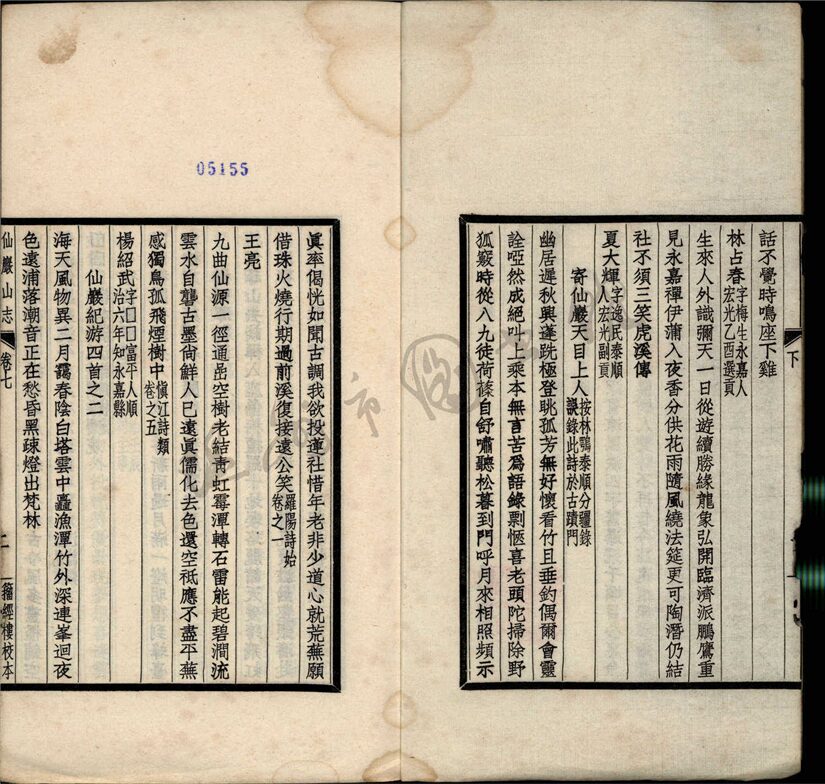 話不覺時鳴座下雞
林占春字梅生永嘉人宏光乙酉選貢
生來人外識彌天一日從遊續勝緣龍象弘開臨濟派鵬鷹重
見永嘉禪伊蒲入夜香分供花雨隨風繞法筵更可陶潛仍結
社不須三笑虎溪傳
夏大輝字逸民泰順人宏光副貢
寄仙巖天目上人按林鶚泰順分疆錄誤錄此詩於古蹟門
幽居遲秋興蓬跣極登眺孤芳無好懷看竹且垂釣偶爾會靈
詮啞然成絕叫上乘本無言苦爲語錄剽愜喜老頭陀掃除野
狐竅時從八九徒荷篠自舒嘯聽松暮到門呼月來相照頻示
下
眞率偈恍如聞古調我欲投蓮社惜年老非少道心就荒蕪願
借珠火燒行期過前溪復接遠公笑羅陽詩始卷之一
王亮
九曲仙源一徑通嵒空樹老結靑虹霉潭轉石雷能起碧澗流
雲水自聾古墨尙鮮人已遠眞儒化去色還空祗應不盡平蕪
感獨鳥孤飛煙樹中愼江詩類卷之五
楊紹武字□□富平人順治六年知永嘉縣
仙巖紀游四首之二
海天風物異二月靄春陰白塔雲中矗漁潭竹外深連峯迴夜
色遠浦落潮音正在愁昏黑疎燈出梵林
仙巖山志 卷七 二 籀經樓校本
05155